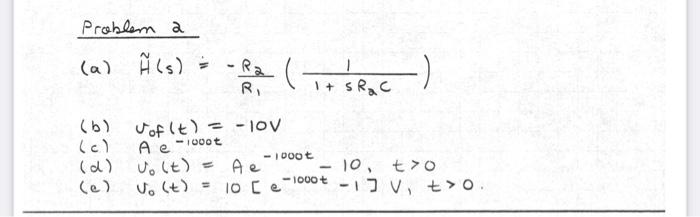 Problem 2
(a) H̃(s) = - R₂/R₁ ( 1 / (1 + sR₂C) )
(b) υof(t) = -10V
(c) A e^-1000t
(d) υo(t) = A e^-1000t - 10, t>0
(e) υo(t) = 10 [ e^-1000t - 1 ] V, t>0.